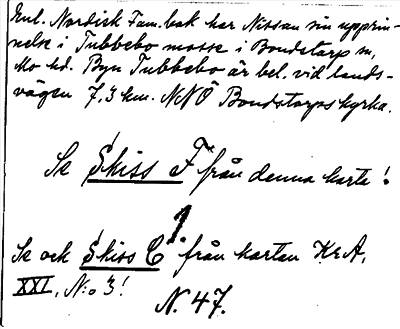 Enl. Nordisk Fam.bok har Nissan sin upprin-
nelse i Tubbebo mosse i Bondstorp sn,
Mo hd. Byn Tubbebo är bel. vid lands-
vägen 7,3 km. NNÖ Bondstorps kyrka.
Se Skiss F från denna karta!
1.
Se och Skiss C från kartan K.r.A,
XXI, N:o 3!
N. 47.